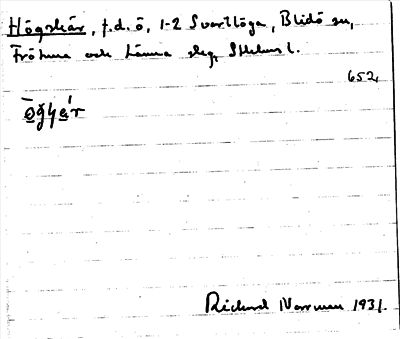 Högskär, f.d. ö, 1-2 Svartlöga, Blidö sn,
Frötuna och Länna slg, Sthlms l.
652,
Richard Norrman 1931.